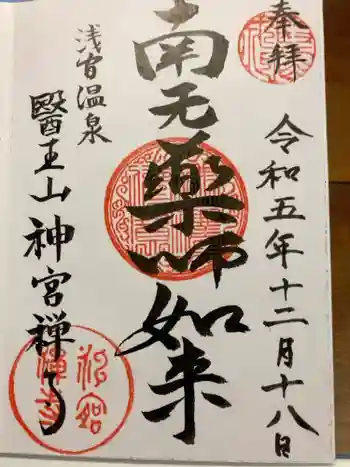 奉拝
令和五年十二月十八日
南无藥師如来
浅間温泉
醫王山神宮禅寺